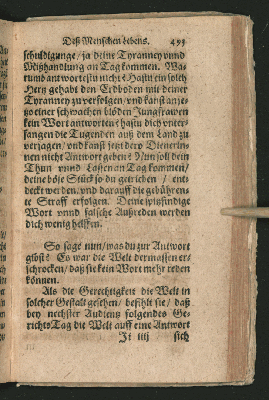 Deß Menschen lebens. 493
schuldigunge / ja deine Tyranney vnnd
Mißhandlung an Tag kommen. Wa-
rumb antwortestu nicht? Hastu ein solch
Hertz gehabt den Erdboden mit deiner
Tyranney zu verfolgen / vnd kanst anje-
tzo einer schwachen blöden Jungfrawen
kein Wort antworten? hastu dich vnter-
fangen die Tugenden auß dem Land zu
verjagen / vnd kanst jetzt dero Dienerin-
nen nicht Antwort geben? Nun soll dein
Thun vnnd Lassen an Tag kommen /
deine böse Stück so du getrieben / ent-
deckt werden / vnd darauff die gebühren-
te Straff erfolgen. Deine spitzfindige
Wort vnnd falsche Außreden werden
dich wenig helffen.
So sage nun / was du zur Antwort
gibst? Es war die Welt dermassen er-
schrocken / daß sie kein Wort mehr reden
können.
Als die Gerechtigkeit die Welt in
solcher Gestalt gesehen / befihlt sie / daß
bey nechster Audientz folgendes Ge-
richts Tag die Welt auff eine Antwort
Ji iiij sich